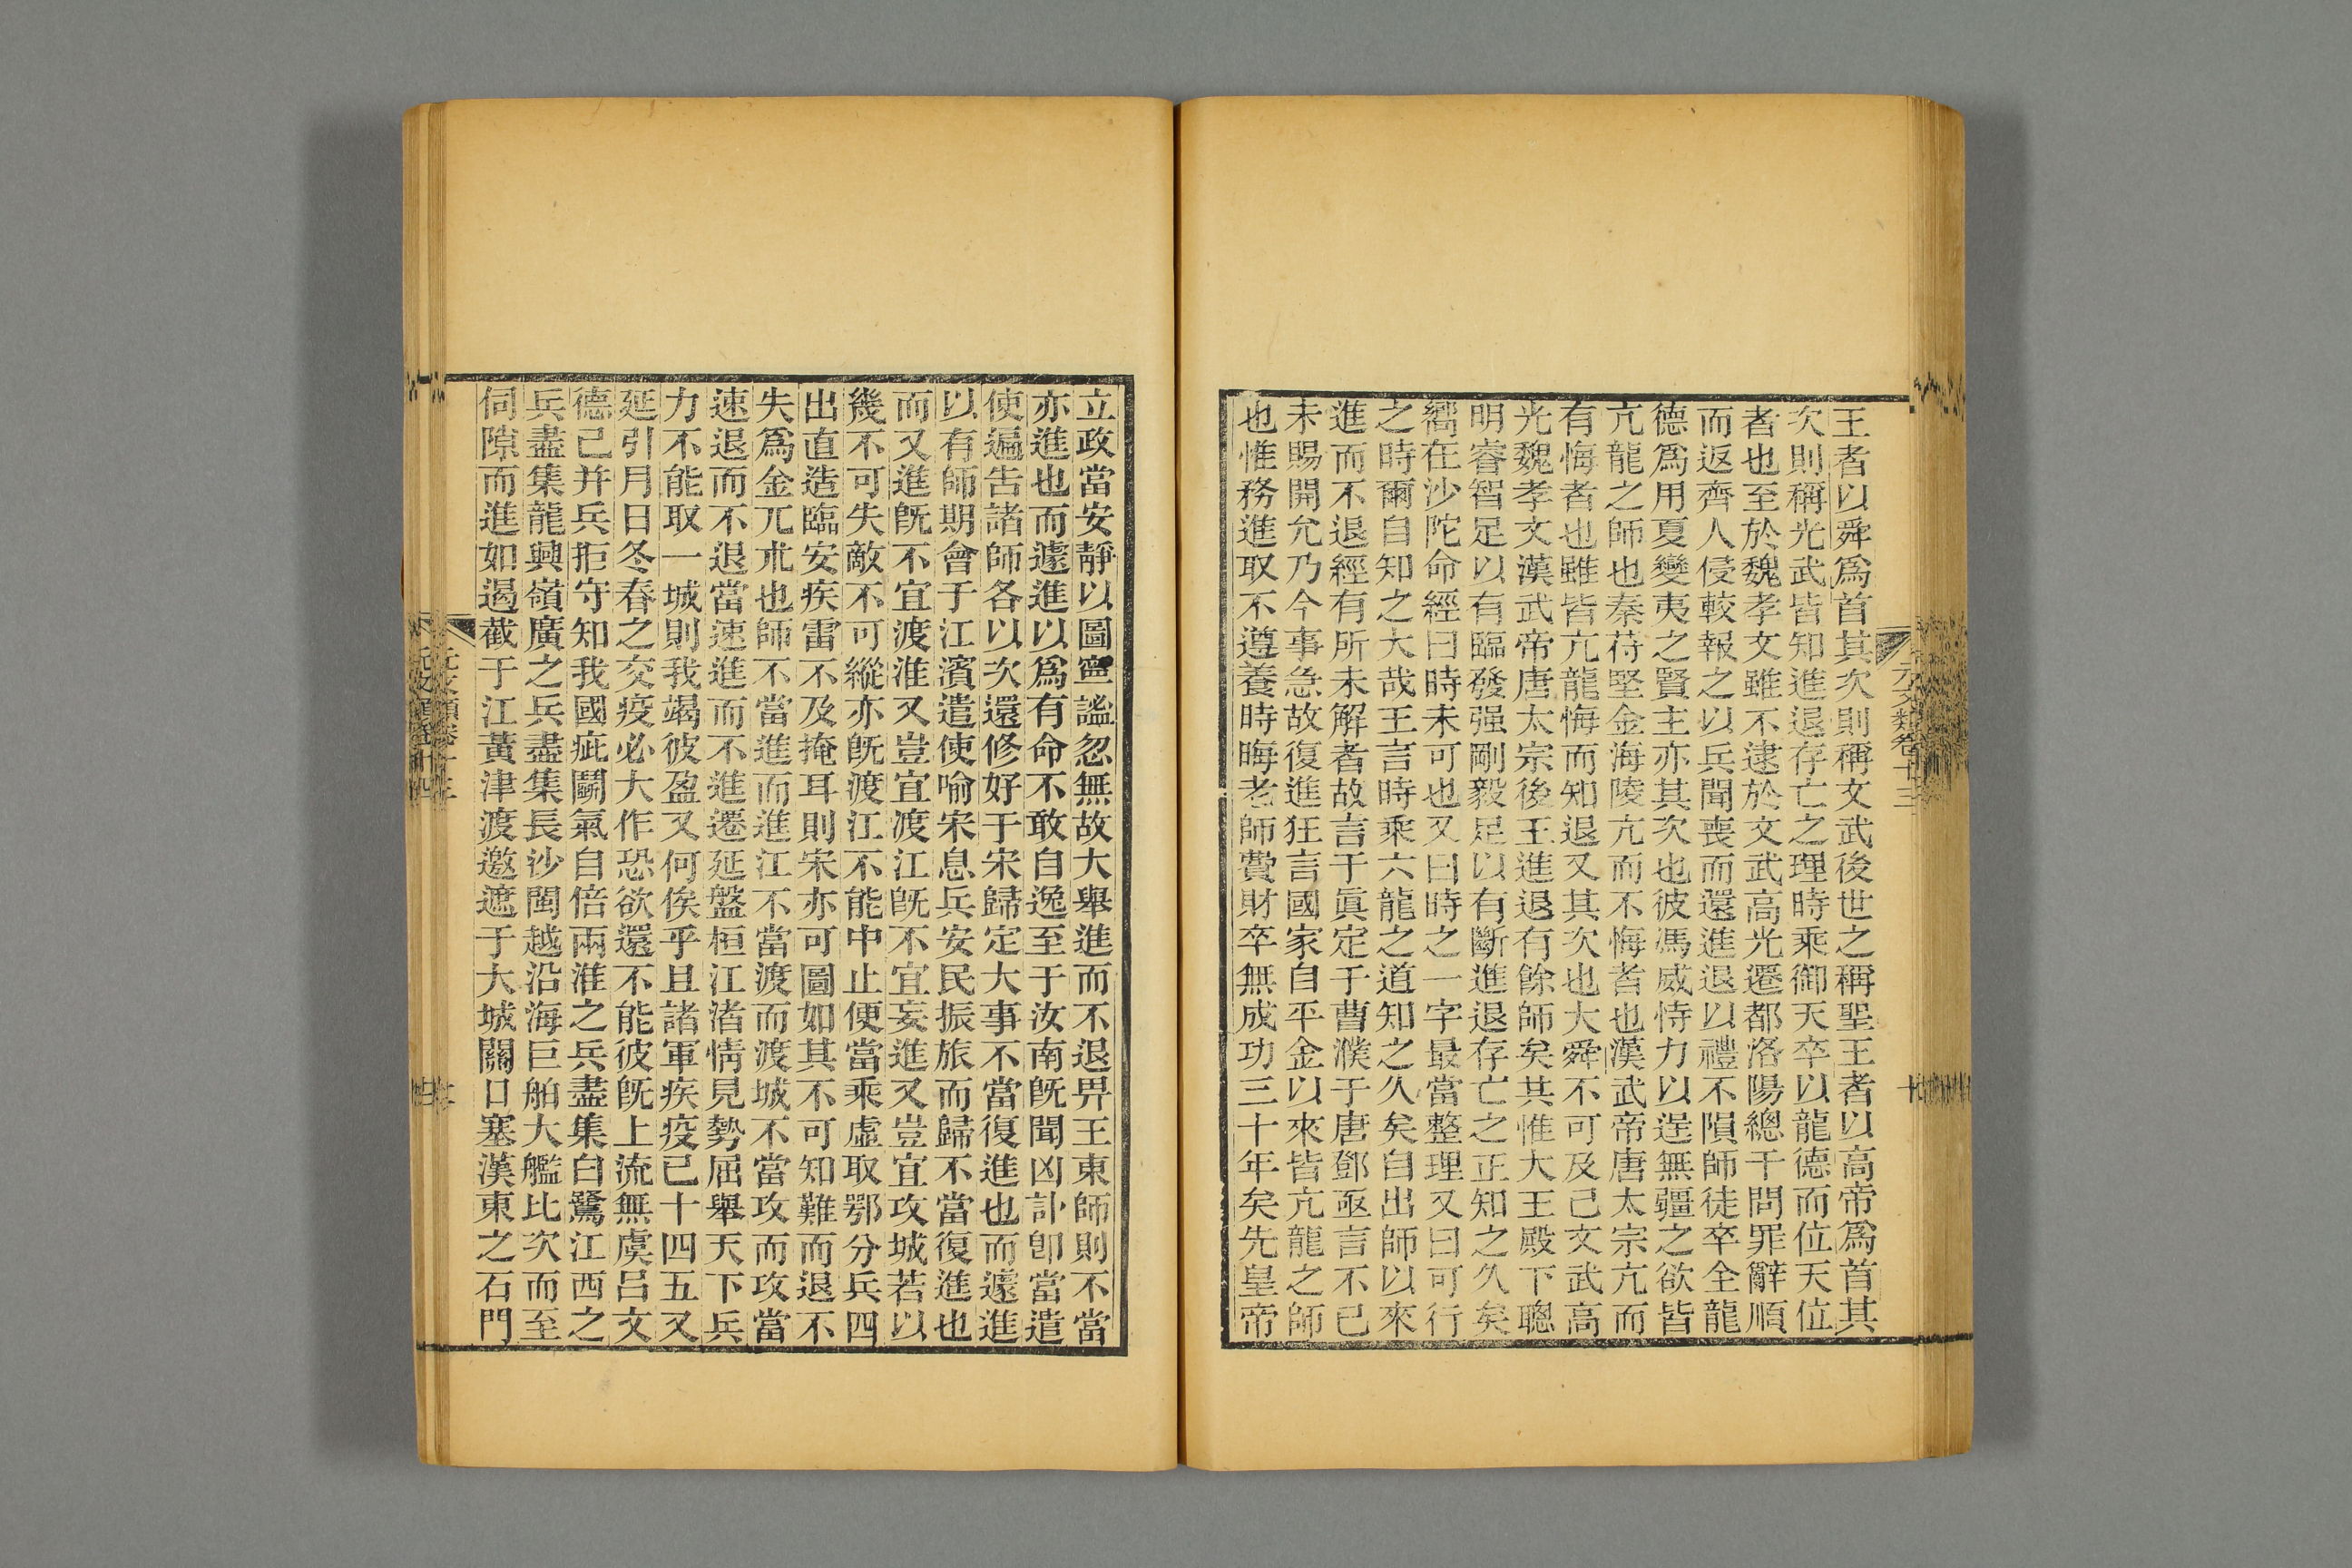 王者以舜爲首其次則稱文武後世之稱聖王者以高帝爲首其
次則稱光武皆知進退存亡之理時乘御天卒以龍德而位天位
者也至於魏孝文雖不逮於文武高光遷都洛陽總干問罪辭順
而返齊人侵較報之以兵聞喪而還進退以禮不隕師徒卒全龍
德爲用夏變夷之賢主亦其次也彼馮威恃力以逞無疆之欲皆
亢龍之師也秦苻堅金海陵亢而不悔者也漢武帝唐太宗亢而
有悔者也雖皆亢龍悔而知退又其次也大舜不可及已文武高
光魏孝文漢武帝唐太宗後王進退有餘師矣其惟大王殿下聰
明睿智足以有臨發强剛毅足以有斷進退存亡之正知之久矣
嚮在沙陀命經曰時未可也又曰時之一字最當整理又曰可行
之時爾自知之大哉王言時乘六龍之道知之久矣自出師以來
進而不退經有所未解者故言于眞定于曹濮于唐鄧亟言不已
未賜開允乃今事急故復進狂言國家自平金以來皆亢龍之師
也惟務進取不遵養時晦老師費財卒無成功三十年矣先皇帝
元文類卷十三
十
立政當安靜以圖寧謐忽無故大舉進而不退畀王東師則不當
亦進也而遽進以爲有命不敢自逸至于汝南旣聞凶訃卽當遣
使遍告諸師各以次還修好于宋歸定大事不當復進也而遽進
以有師期會于江濱遣使喻宋息兵安民振旅而歸不當復進也
而又進旣不宜渡淮又豈宜渡江旣不宜妄進又豈宜攻城若以
幾不可失敵不可縱亦旣渡江不能中止便當乘虛取鄂分兵四
出直造臨安疾雷不及掩耳則宋亦可圖如其不可知難而退不
失爲金兀朮也師不當進而進江不當渡而渡城不當攻而攻當
速退而不退當速進而不進遷延盤桓江渚情見勢屈舉天下兵
力不能取一城則我竭彼盈又何俟乎且諸軍疾疫已十四五又
延引月日冬春之交疫必大作恐欲還不能彼旣上流無虞呂文
德已并兵拒守知我國疵鬭氣自倍兩淮之兵盡集白鷺江西之
兵盡集龍興嶺廣之兵盡集長沙閩越沿海巨舶大艦比次而至
伺隙而進如遏截于江黃津渡邀遮于大城關口塞漢東之石門